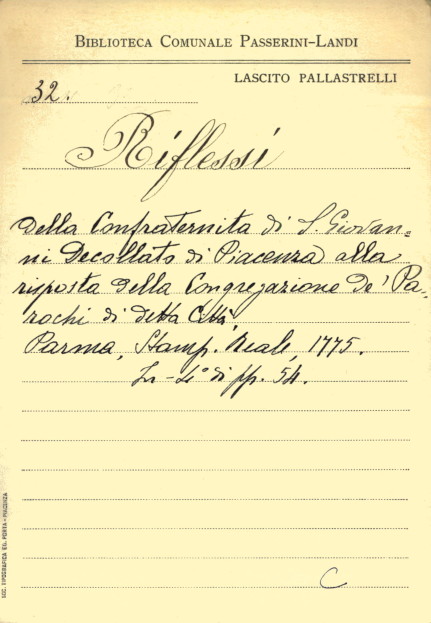 BIBLIOTECA COMUNALE PASSERINI-LANDI
LASCITO PALLASTRELLI
32.
Riflessi
della Confraternita di S. Giovan=
ni Decollato di Piacenza alla
risposta della Congregazione de' Pa-
rochi di detta Città,
Parma, Stamp. Reale, 1775.
In-4° di pp. 54.
C
SOC. TIPOGRAFICA ED. PORTA - PIACENZA